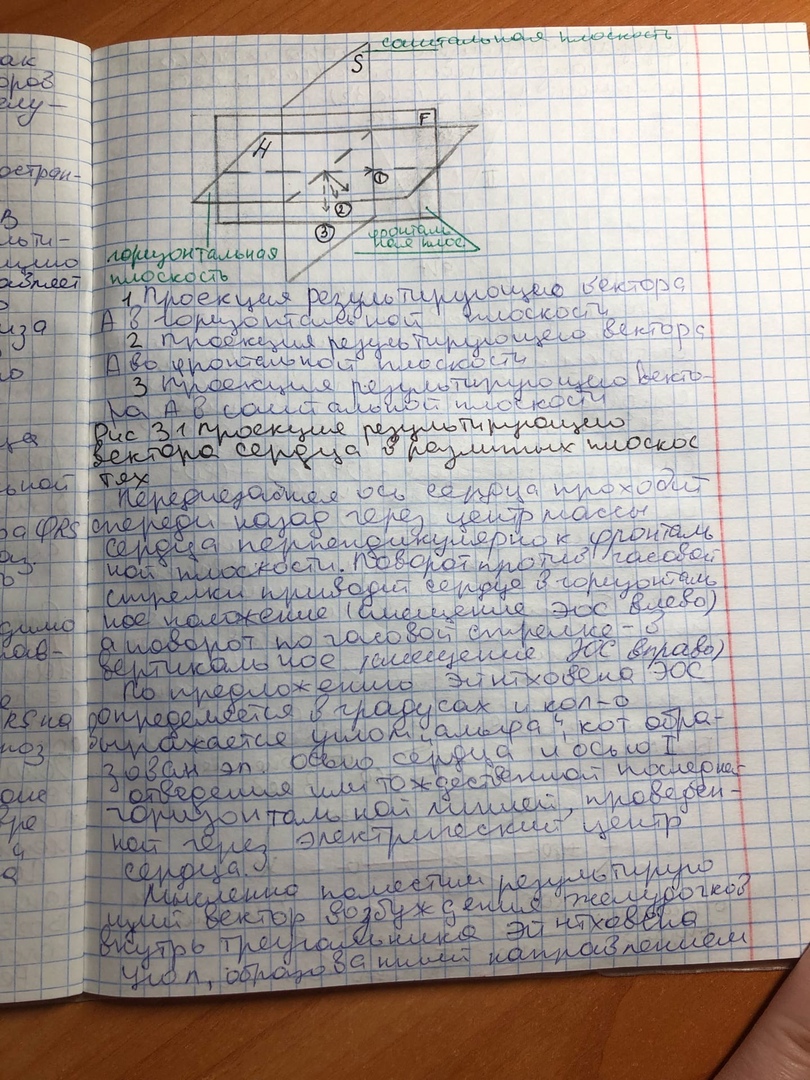 ак
оров
елу-
остран-
В
льти-
ацию
авляет
иза
ца
льной
ра QRS
аз.
димо
рав-
RS на
ноз
сагитальная плоскость
S
F
H
1
2
3
горизонтальная
плоскость
фронталь
ная плос
1 Проекция результирующего вектора
А в горизонтальной плоскости
2 проекция результирующего вектора
А во фронтальной плоскости
3 проекция результирующего векто-
ра А в сагитальной плоскости
Рис 31 проекция результирующего
вектора сердца в различных плоскос
тях
Переднезадняя ось сердца проходит
спереди назад через центр массы
сердца перпендикулярно к фронталь
ной плоскости. Поворот против часовой
стрелки приводит сердце в горизонталь
ное положение (смещение ЭОС влево)
а поворот по часовой стрелке - в
вертикальное (смещение ЭОС вправо)
По предложению Эйнтховена ЭОС
определяется в градусах и кол-о
выражается углом "альфа", кот обра-
зован эл. осью сердца и осью I
отведения или тождественной последней
горизонтальной линией, проведен-
ной через электрический центр
сердца.
Мысленно поместим результирую
щий вектор возбуждения желудочков
внутрь треугольника Эйнтховена
Угол, образованный направлением